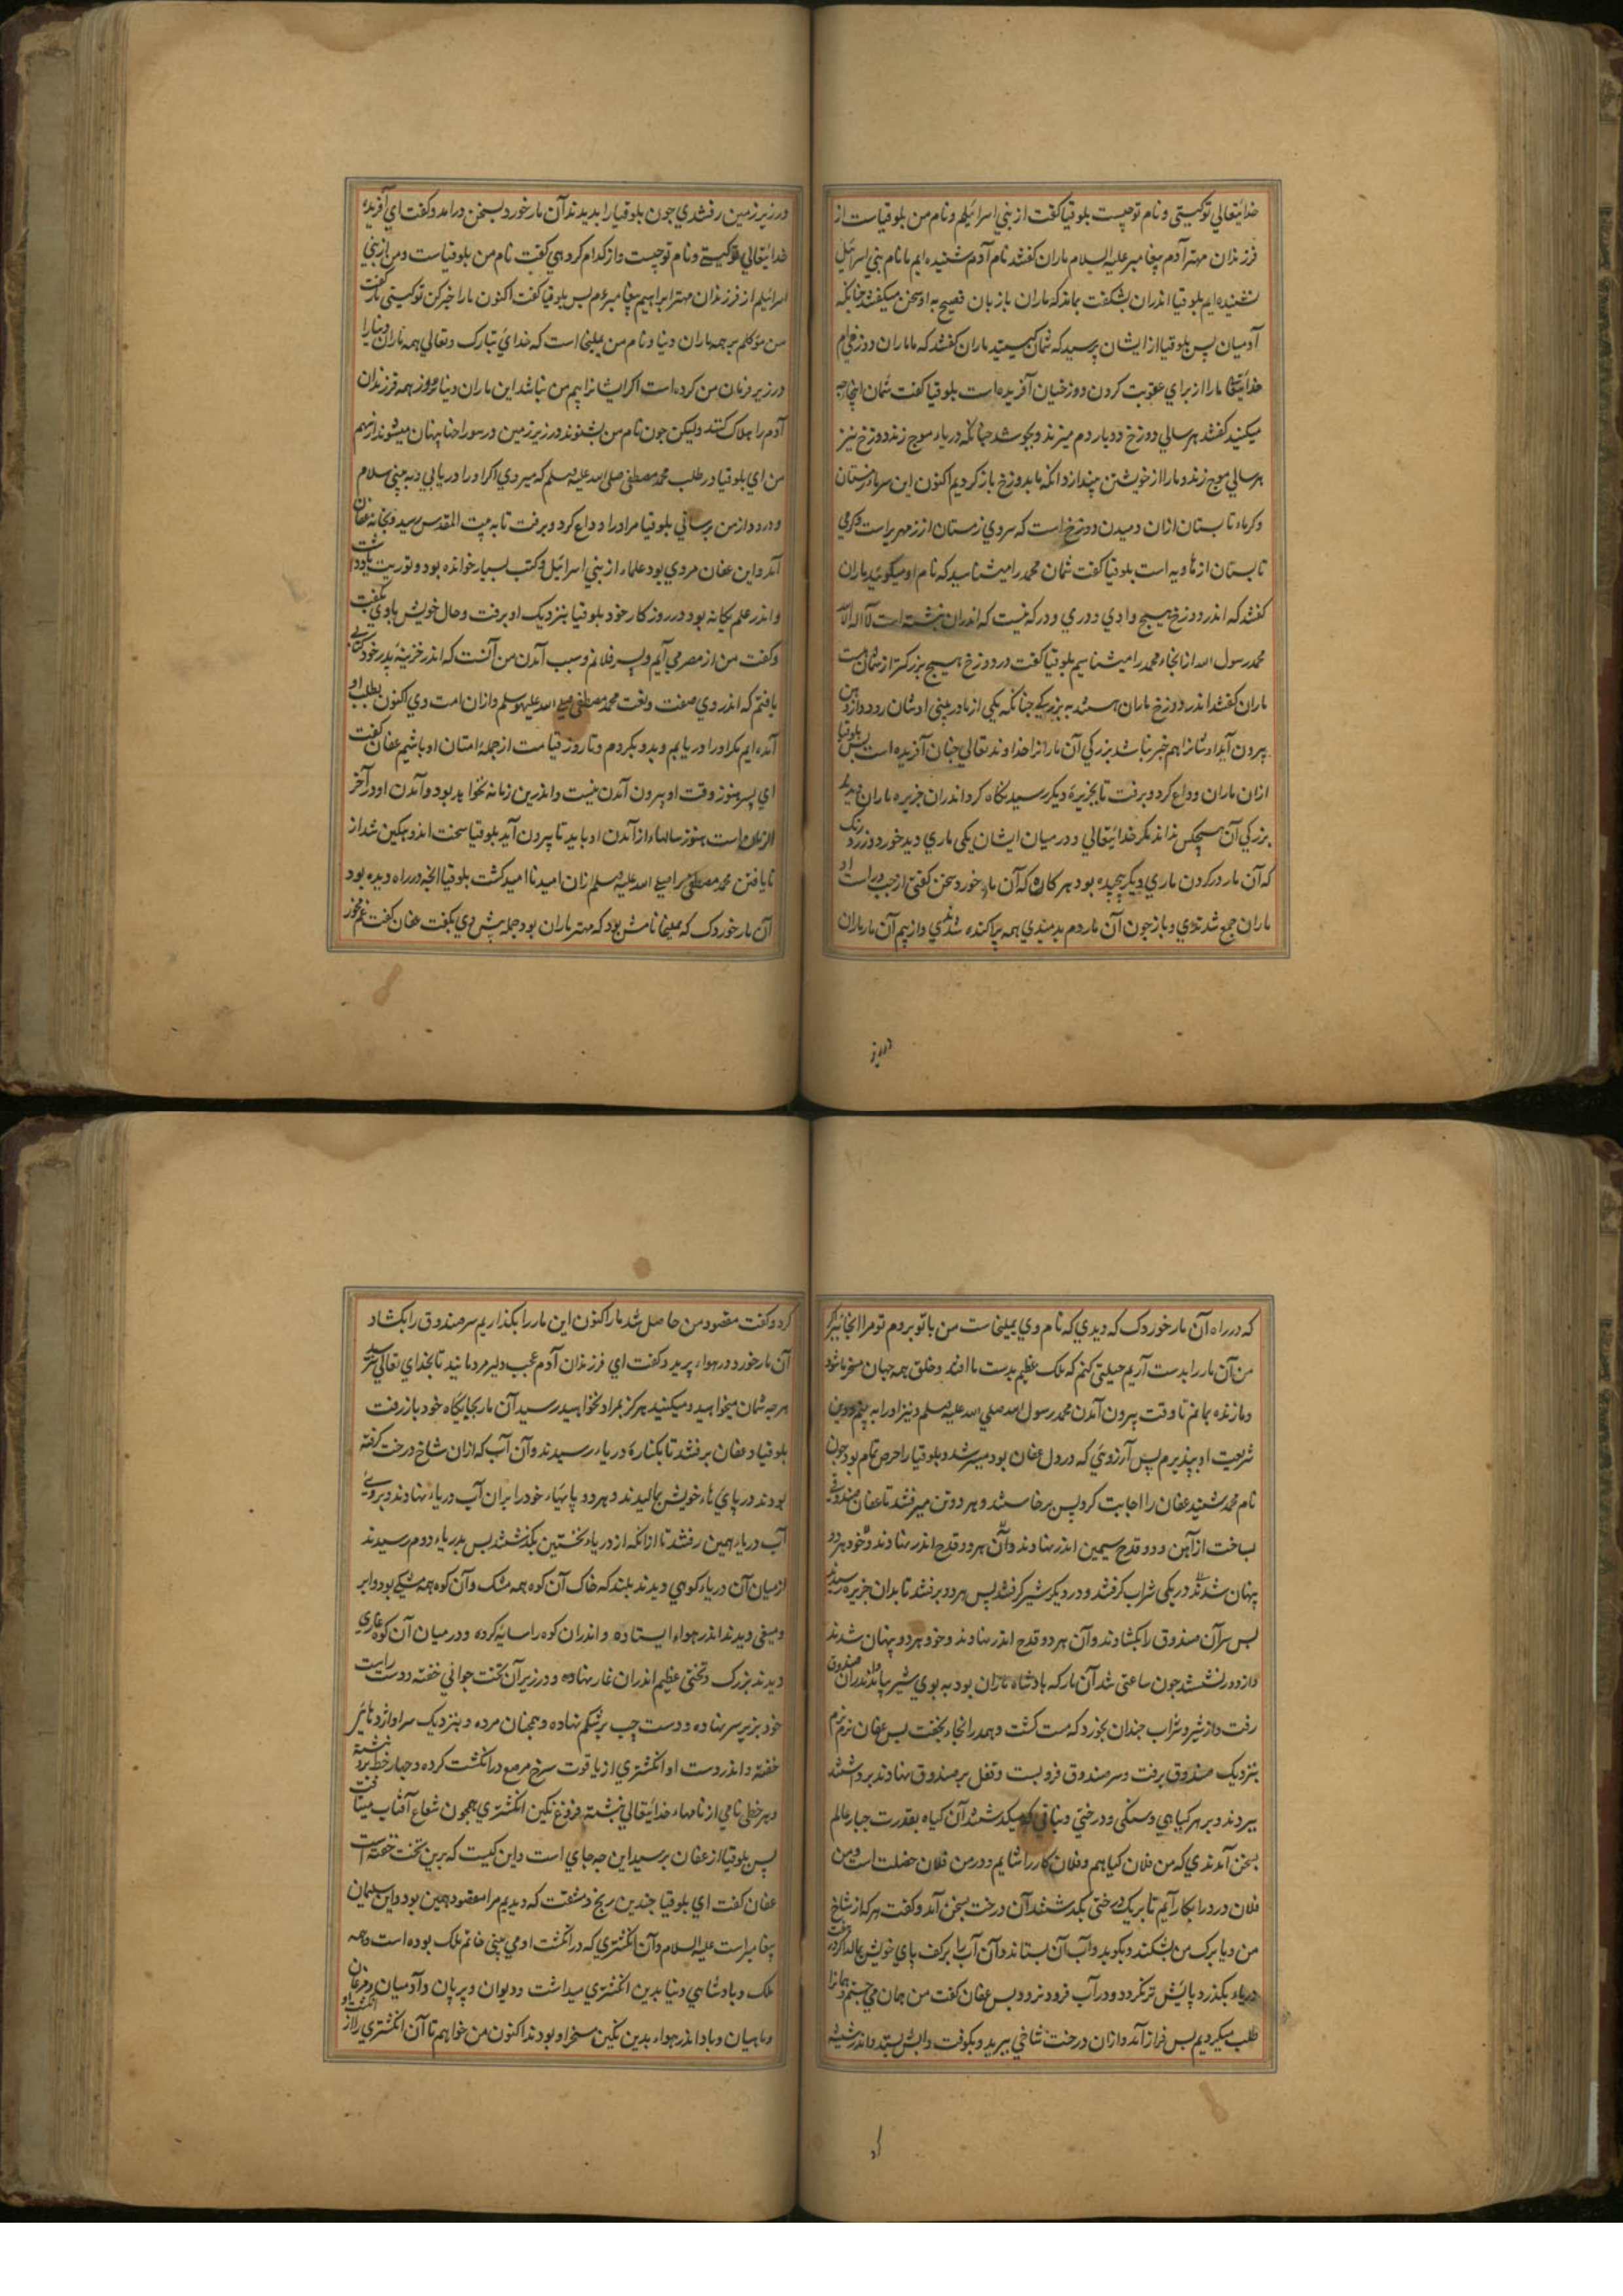 خدایتعالی توکیستی و نام تو چیست بلوقیا کفت از بنی اسرائیلم و نام من بلوقیاست از
فرزندان مهتر آدم پیغامبر علیه السلام ماران کفتند نام آدم شنیده ایم ما نام بنی اسرائیل
نشنیده ایم بلوقیا اندران بشکفت بماند که ماران بازبان فصیح به او سخن میکفتند چنانکه
آدمیان پس بلوقیا از ایشان پرسید که شمان کیستید ماران کفتند که ماماران دوزخی ام
خدایتعالی مارا از برای عقوبت کردن دوزخیان آفریده است بلوقیا کفت شمان اینجا چه
میکنید کفتند هر سالی دوزخ دو بار دم میزند و بجوشد چنانکه دریاء موج زند دوزخ نیز
هر سالی موج زند و مارا از خویشتن بیندازد انکه ما بدوزخ باز کردیم اکنون این سرماء زمستان
و کرماء تابستان ازان دمیدن دوزخ است که سردی زمستان از زمهریر است و کرمی
تابستان از هاویه است بلوقیا کفت شمان محمد را میشناسید که نام او میکوئید ماران
کفتند که اندر دوزخ هیچ وادی و دری و درکه نیست که اندران نبشته است لا اله الا الله
محمد رسول الله ازانجاء محمد را میشناسیم بلوقیا کفت در دوزخ هیچ بزرکتر از شمان هست
ماران کفتند اندر دوزخ ماران هستند به بزرکی چنانکه یکی از مادر بینی اوشان رود و از دهن
بیرون آید اوشانرا هم خبر نباشد بزرکی آن مارانرا خداوند تعالی چنان آفریده است پس بلوقیا
ازان ماران وداع کرد و برفت تا بجزیرهٔ دیکر رسید نکاه کرد اندران جزیره ماران دید که
بزرکی آن هیچکس نداند مکر خدایتعالی و در میان ایشان یکی ماری دید خورد و زرد رنک
که آن مار در کردن ماری دیکر پیچیده بود هر کاه که آن مار خورد سخن کفتی از چپ و راست او
ماران جمع شدندی و باز چون آن مار دم بدمیدی همه پراکنده شدندی و از بیم آن مار ماران
در زیر
در زیر زمین رفتندی چون بلوقیا را بدیدند آن مار خورد بسخن درامد و کفت ای آفریده
خدایتعالی توکیستی و نام تو چیست و از کدام کروهی کفت نام من بلوقیاست و من از بنی
اسرائیلم از فرزندان مهتر ابراهیم پیغامبرم پس بلوقیا کفت اکنون مارا خبر کن توکیستی مار کفت
من موکلم بر همه ماران دنیا و نام من یملیخا است که خدای تبارک و تعالی همه ماران دنیارا
در زیر فرمان من کرده است اکر ایشانرا بیم من نباشد این ماران دنیا امروز همه فرزندان
آدم را هلاک کنند ولیکن چون نام من بشنوند در زیر زمین و در سوراخها پنهان میشوند از بیم
من ای بلوقیا در طلب محمد مصطفی صلی الله علیه وسلم که میروی اکر او را دریابی و به بینی سلام
و درود از من برسانی بلوقیا مر او را وداع کرد و برفت تا به بیت المقدس رسید و بخانه عفان
آمد و این عفان مردی بود علماء از بنی اسرائیل و کتب بسیار خوانده بود و توریت یاد داشت
و اندر علم یکانه بود در روزکار خود بلوقیا بنزدیک او برفت و حال خویش باوی بکفت
و کفت من از مصر می آیم و پسر فلانم و سبب آمدن من آنست که اندر خزینهٔ پدر خود کتابی
یافتم که اندر وی صفت و نعت محمد مصطفی صلی الله علیه وسلم و ازان امت وی اکنون بطلب او
آمده ایم مکر او را دریابم و بدو بکردم و تا روز قیامت از جملهٔ امتان او باشم عفان کفت
ای پسر هنوز وقت او بیرون آمدن نیست و اندرین زمانه نخواهد بود و آمدن او در آخر
الزمان است هنوز سالهاء از آمدن او باید تا بیرون آید بلوقیا سخت اندوهکین شد از
نایافتن محمد مصطفی را صلی الله علیه وسلم ازان امید ناامید کشت بلوقیا آنچه در راه دیده بود
آن مار خوردک که یملیخا نامش بود که مهتر ماران بود جمله پیش وی بکفت عفان کفت غم مخور
که در راه آن مار خوردک که دیدی که نام وی یملیخاست من باتو بروم تو مرا انجا ببر که
من آن مار را بدست آریم حیلتی کنم که ملک عظیم بدست ما افتد و خلق همه جهان مسخر ما شود
و ما زنده بمانم تا وقت بیرون آمدن محمد رسول الله صلی الله علیه وسلم و نیز او را به بینم و دین
شریعت او بپذیرم پس آرزوئی که در دل عفان بود میسر شد و بلوقیا را حرص تمام بود چون
نام محمد شنید عفان را اجابت کرد پس برخاستند و هر دو تن میرفتند تا عفان صندوقی
بساخت از آهن و دو قدح سیمین اندر نهادند و آن هر دو قدح اندر نهادند و خود هر دو
پنهان شدند در یکی شراب کرفتند و در دیکر شیر کرفتند پس هر دو برفتند تا بدان جزیره رسیدند
پس سر آن صندوق را بکشادند و آن هر دو قدح اندر نهادند و خود هر دو پنهان شدند
و از دور نشستند چون ساعتی شد آن مار که بادشاه ماران بود به بوی شیر بیامد و اندران صندوق
رفت و از شیر و شراب چندان بخورد که مست کشت و همدر انجاء بخفت پس عفان نرم نرم
بنزدیک صندوق برفت و سر صندوق فرو بست و قفل بر صندوق نهادند برداشتند
ببردند و بر هر کیاهی و سنکی و درختی و نباتی که میکذشتند آن کیاه بقدرت جبار عالم
بسخن آمدندی که من فلان کیاهم و فلان کار را شایم و در من فلان خصلت است و من
فلان درد را بکار آیم تا بر یک درختی بکذشتند آن درخت بسخن آمد و کفت هر که از شاخ
من و یا برک من بشکند و بکوبد و آب آن بستاند و آن آب را بر کف پای خویش بمالد اکر در هفت
دریاء بکذرد پایش تر نکردد و در آب فرو نرود پس عفان کفت من همان می جستم و همانرا
طلب میکردیم پس فراز آمد و ازان درخت شاخی ببرید و بکوفت و آبش بستد و اندر شیشه
کرد
کرد و کفت مقصود من حاصل شد ما را اکنون این مار را بکذاریم سر صندوق را بکشاد
آن مار خورد در هواء پرید و کفت ای فرزندان آدم عجب دلیر مردمانید تا بخدای تعالی
هر چه شمان میخواهید و میکنید هرکز بمراد نخواهید رسید آن مار بجایکاه خود باز رفت
بلوقیا و عفان برفتند تا بکنارهٔ دریاء رسیدند و آن آب که ازان شاخ درخت کرفته
بودند در پای هاء خویش بمالیدند و هر دو پایهاء خود را بران آب دریاء نهادند و بروی
آب دریاء همین رفتند تا ازانکه از دریاء نخستین بکذشتند پس بدریاء دوم رسیدند
از میان آن دریاء کوهی دیدند بلند که خاک آن کوه همه مشک و آن کوه همه سنکی بود و ابر
و میغی دیدند اندر هواء ایستاده و اندران کوه را سایه کرده و در میان آن کوه غاری
دیدند بزرک و تختی عظیم اندران غار نهاده و در زیر آن تخت جوانی خفته و دست راست
خود بزیر سر نهاده و دست چپ بر شکم نهاده و همچنان مرده و بنزدیک سر او اژدهایی
خفته و اندر دست او انکشتری از یاقوت سرخ مرصع در انکشت کرده و چهار خط برو نبشته
و بر هر خطی نامی از نامهاء خدایتعالی نبشته و فروغ نکین انکشتری همچون شعاع آفتاب میتافت
پس بلوقیا از عفان پرسید این چه جای است و این کیست که برین تخت خفته است
عفان کفت ای بلوقیا چندین رنج و مشقت که دیدیم مرا مقصود همین بود و این سلیمان
پیغامبر است علیه السلام و آن انکشتری که در انکشت او می بینی خاتم ملک بوده است و همه
ملک و بادشاهی دنیا بدین انکشتری میداشت و دیوان و پریان و آدمیان و مرغان
و ماهیان و باد اندر هواء بدین نکین مسخر او بودند اکنون من خواهم تا آن انکشتری را از انکشت او